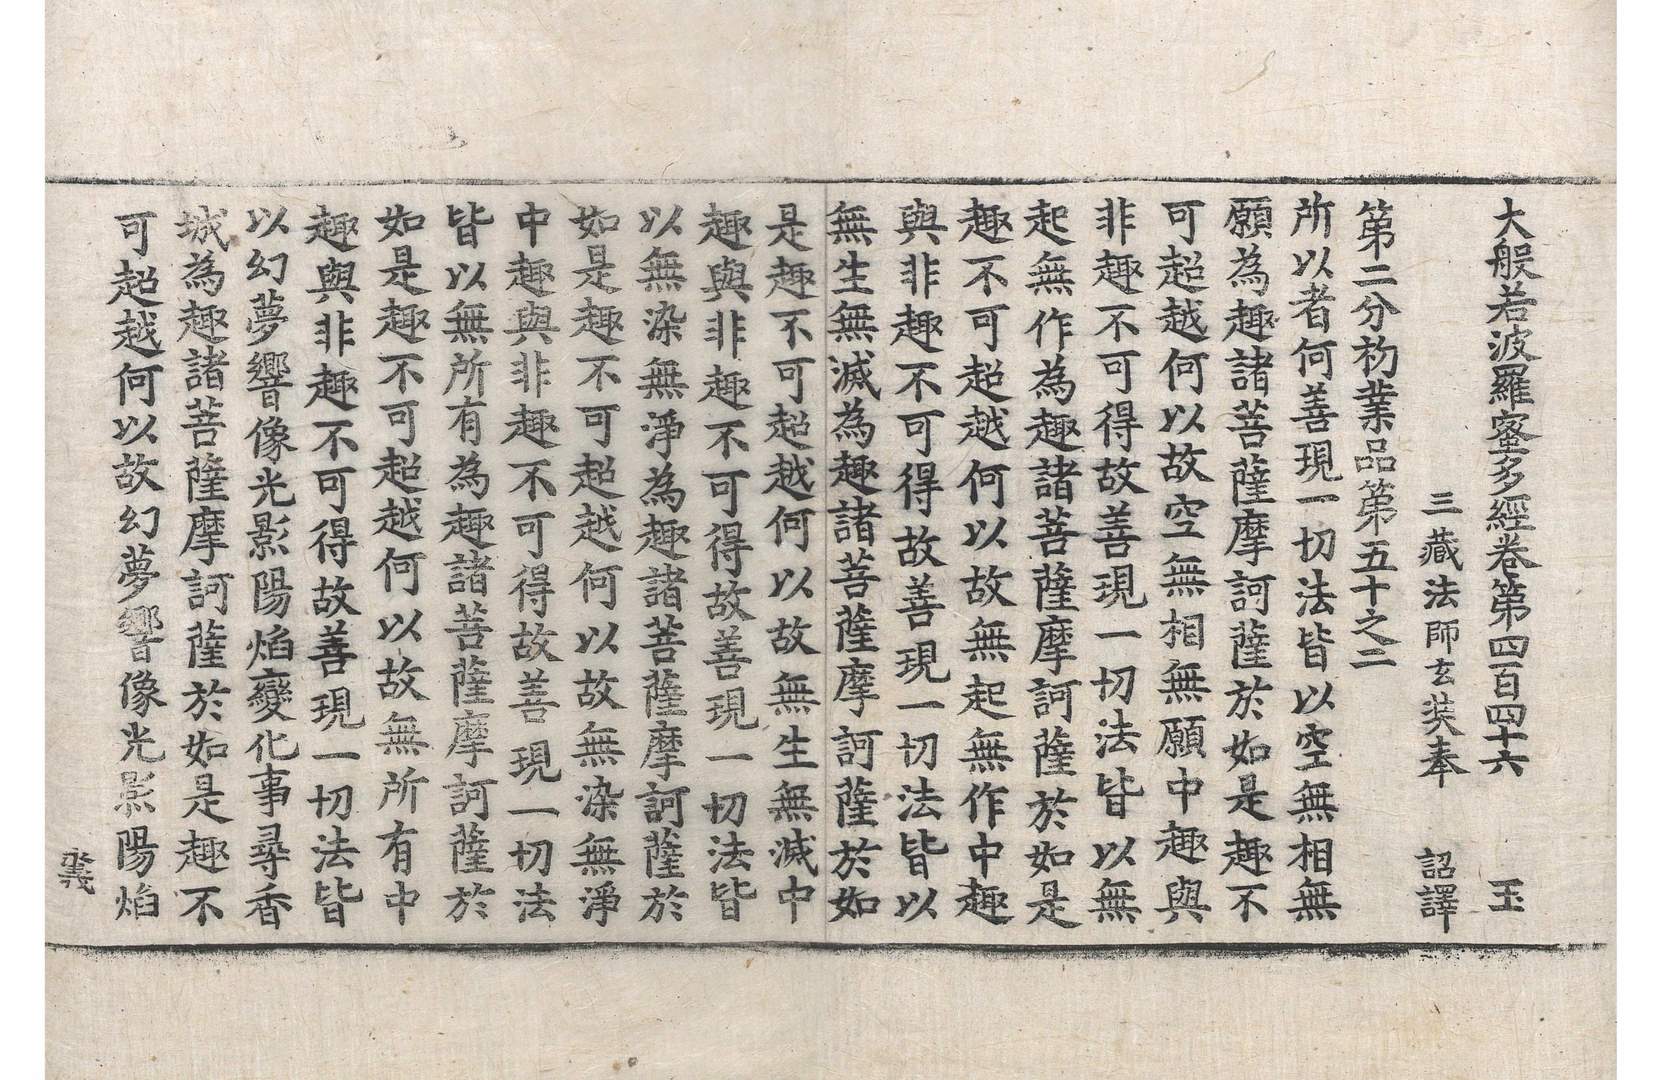 大般若波羅蜜多經卷第四百四十六 玉
三藏法師玄奘奉 詔譯
第二分初業品第五十之二
所以者何善現一切法皆以空無相無
願為趣諸菩薩摩訶薩於如是趣不
可超越何以故空無相無願中趣與
非趣不可得故善現一切法皆以無
起無作為趣諸菩薩摩訶薩於如是
趣不可超越何以故無起無作中趣
與非趣不可得故善現一切法皆以
無生無滅為趣諸菩薩摩訶薩於如
是趣不可超越何以故無生無滅中
趣與非趣不可得故善現一切法皆
以無染無淨為趣諸菩薩摩訶薩於
如是趣不可超越何以故無染無淨
中趣與非趣不可得故善現一切法
皆以無所有為趣諸菩薩摩訶薩於
如是趣不可超越何以故無所有中
趣與非趣不可得故善現一切法皆
以幻夢響像光影陽焰變化事尋香
城為趣諸菩薩摩訶薩於如是趣不
可超越何以故幻夢響像光影陽焰
永義